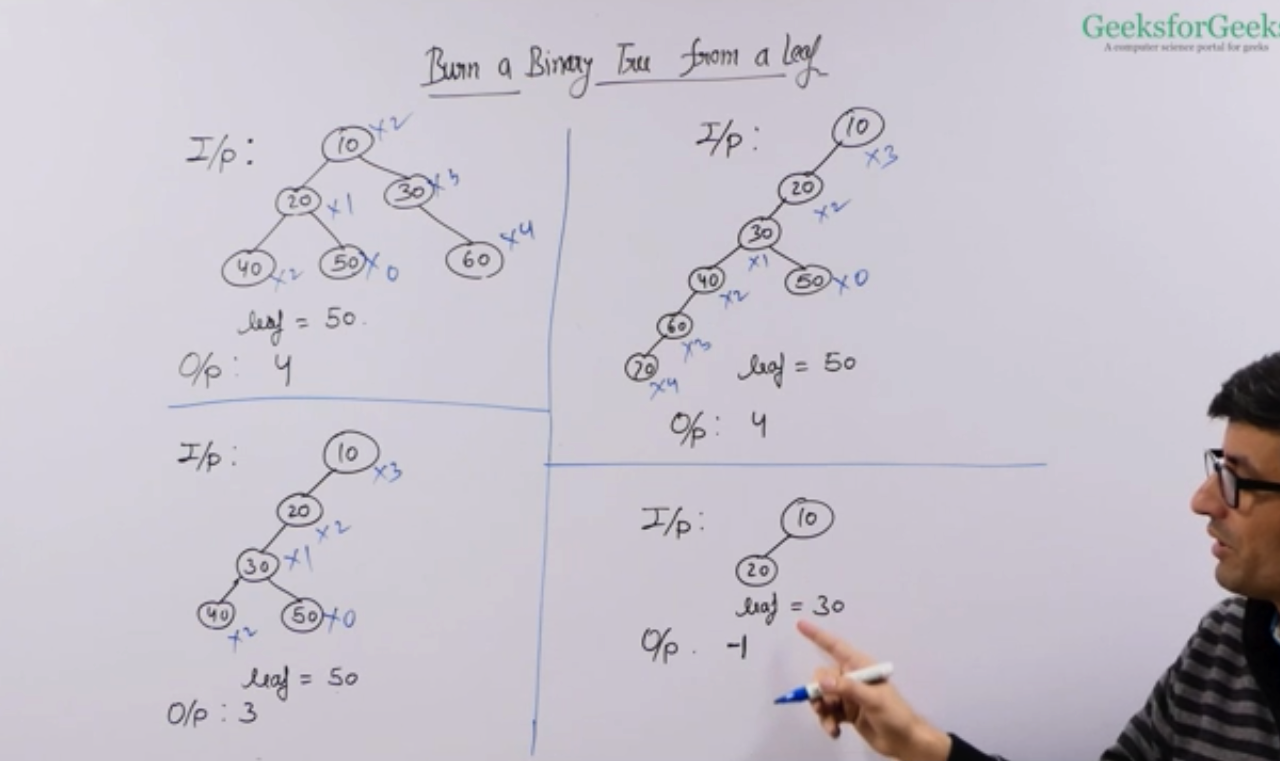 GeeksforGeeks
A computer science portal for geeks
Burn a Binary Tree from a Leaf
I/p:
10 x2
20 x1
30 x3
40 x2
50 x0
60 x4
leaf = 50.
O/p: 4
I/p:
10
x3
20
x2
30
x1
40
x2
50 x0
60
x3
20
x4
leaf = 50
O/p: 4
I/p:
10
x3
20
x2
30 x1
40
x2
50 x0
leaf = 50
O/p: 3
I/p:
10
20
leaf = 30
O/p. -1